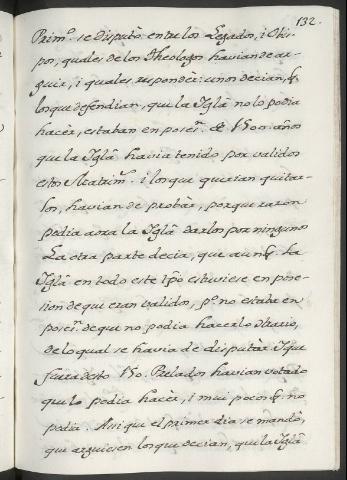 132.
Prim.º se disputò entre los Legados, i Obis-
pos, quales de los Theologos havian de ar-
guir, i quales responder: unos decian, q.
los que defendian, que la Iglã no lo podia
hacer, estaban en poses.n de 1500. años
que la Iglã havia tenido por validos
estos Matrim.s i los que querian quitar-
los, havian de probàr, porque razon
podia aora la Iglã darlos por ningunos
La otra parte decia, que aunq. la
Iglã en todo este tpõ estuviese en pose-
sion de que eran validos, p.º no estaba en
poses.n de que no podia hacerlo Irritos,
de lo qual se havia de disputàr I que
fuera desto 150. Prelados havian votado
que lo podia hacèr, i mui pocos q. no
podia. Ansi que el primer dia se mandò,
que arguiesen los que decian, que la Iglã